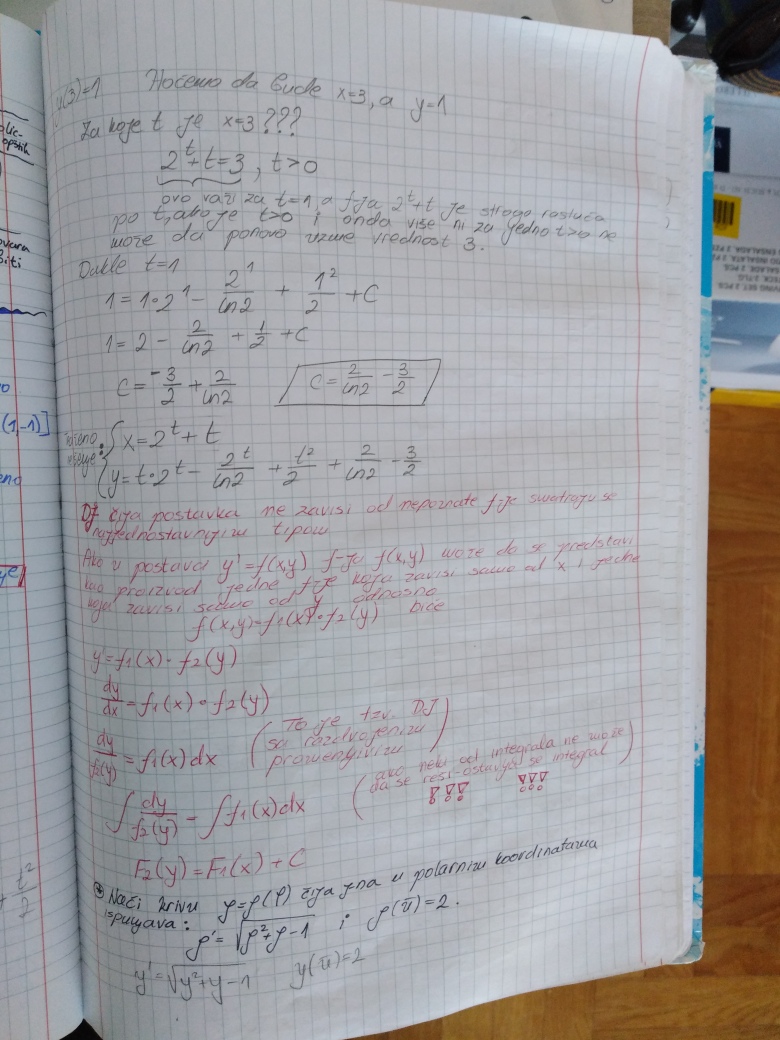 y(3)=1 Hoćemo da bude x=3, a y=1
Za koje t je x=3???
2^t+t=3, t>0
ovo važi za t=1, a f-ja 2^t+t je strogo rastuća
po t, ako je t>0 i onda više ni za jedno t>0 ne
može da ponovo uzme vrednost 3.
Dakle t=1
1=1·2^1 - 2^1/ln2 + 1^2/2 + C
1=2 - 2/ln2 + 1/2 + C
C=-3/2 + 2/ln2 C=2/ln2 - 3/2
rešenje: { x=2^t+t
y=t·2^t - 2^t/ln2 + t^2/2 + 2/ln2 - 3/2
DJ čija postavka ne zavisi od nepoznate f-je smatraju se
najjednostavnijim tipom
Ako u postavci y'=f(x,y) f-ja f(x,y) može da se predstavi
kao proizvod jedne f-je koja zavisi samo od x i jedne
koja zavisi samo od y odnosno
f(x,y)=f1(x)·f2(y) biće
y'=f1(x)·f2(y)
dy/dx=f1(x)·f2(y)
dy/f2(y)=f1(x)dx (To je tzv. DJ
sa razdvojenim
promenjivim)
∫dy/f2(y)=∫f1(x)dx (ako neki od integrala ne može
da se reši-ostavlja se integral)
!!! !!!
F2(y)=F1(x)+C
Naći krivu ρ=ρ(φ) čija j-na u polarnim koordinatama
ispunjava:
ρ'=√(ρ^2+ρ-1) i ρ(π)=2.
y'=√(y^2+y-1) y(π)=2